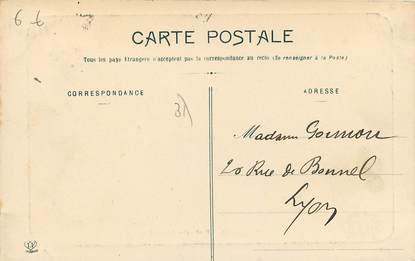 6-6
CARTE POSTALE
Tous les pays étrangers n'acceptent pas la correspondance au recto (Se renseigner à la Poste)
CORRESPONDANCE
ADRESSE
31
Madame
20 Rue de Bonnel
Lyon